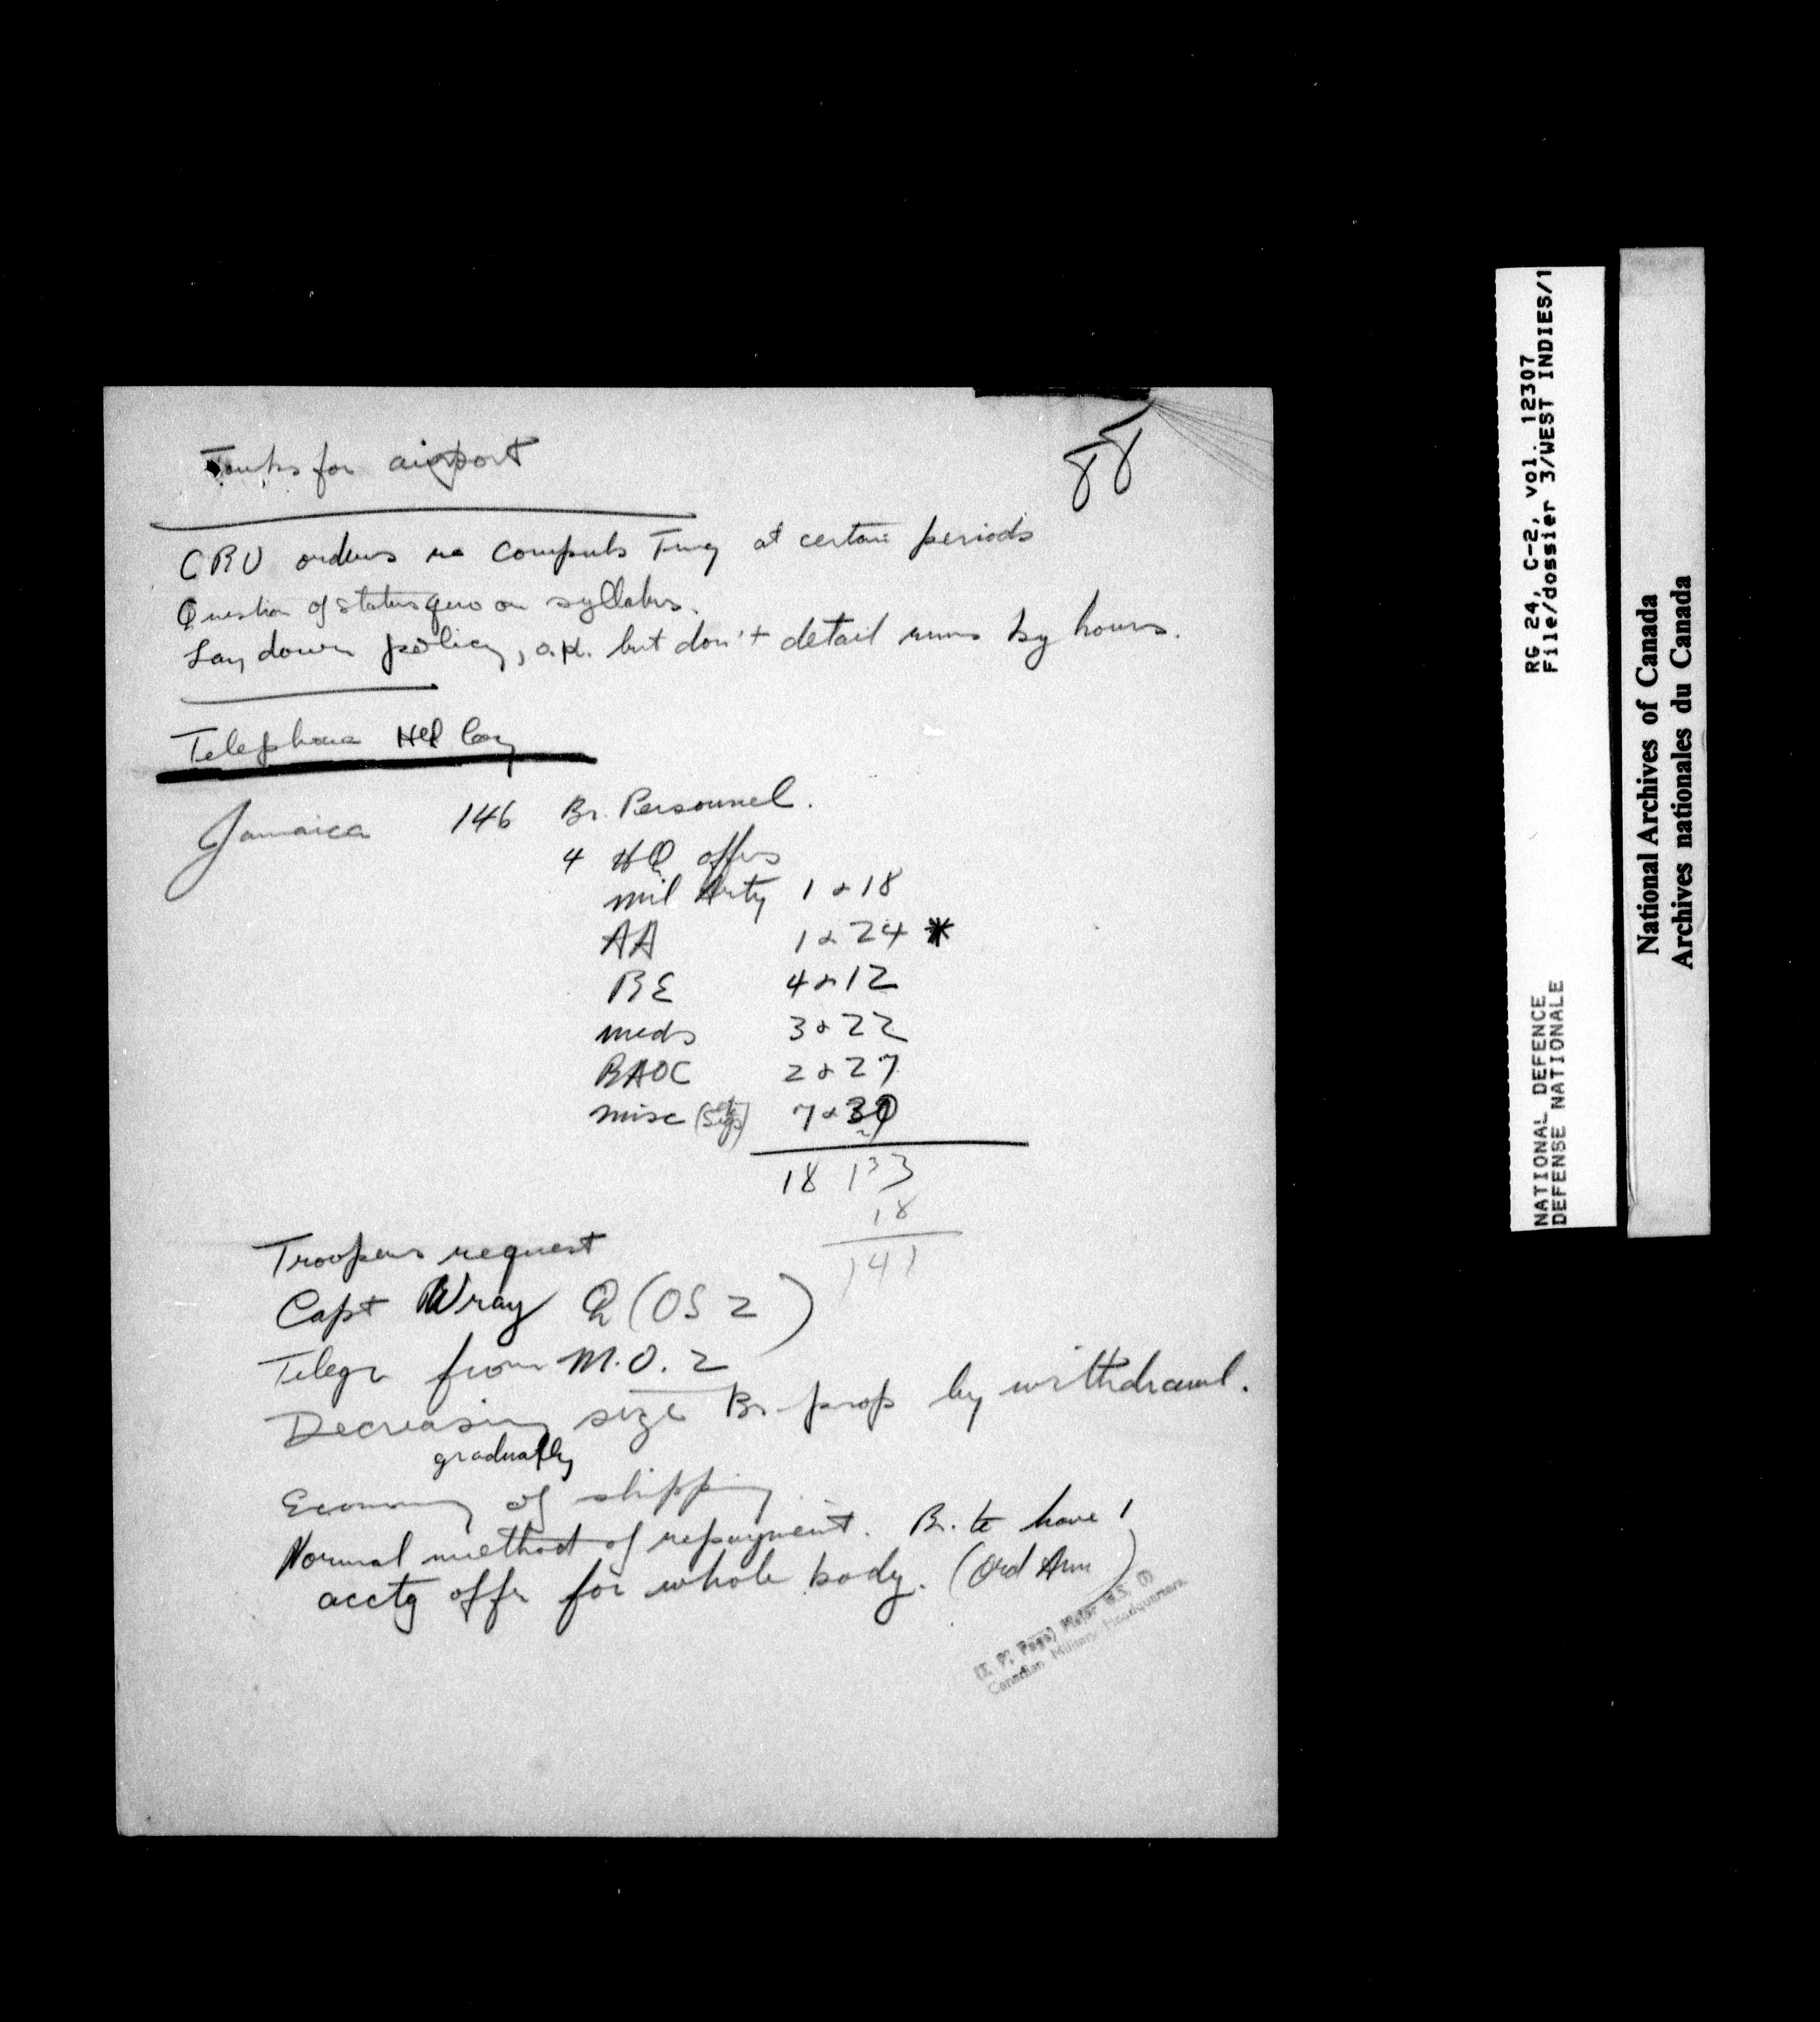 Tanks for airport
88
CRU orders re Compuls Trng at certain periods
Question of status quo on syllabus.
Lay down policy, o.k. but don't detail runs by hours.
Telephone
Jamaica 146 Br. Personnel.
4 HQ offrs
mil Arty 1 & 18
AA 1 & 24 *
RE 4 & 12
meds 3 & 22
RAOC 2 & 27
misc (Sigs) 7 & 30
18 133
18
141
Troopers request
Capt Wray Q (OS 2)
Telegr from M.O. 2
Decreasing size Br. prop by withdrawl.
gradually
Economy of shipping
Normal method of repayment. Br. to have 1
acctg offr for whole body. (Ord Arm)
Major G.S. (I)
Canadian Military Headquarters
RG 24, C-2, vol. 12307
File/dossier 3/WEST INDIES/1
NATIONAL DEFENCE
DEFENSE NATIONALE
National Archives of Canada
Archives nationales du Canada